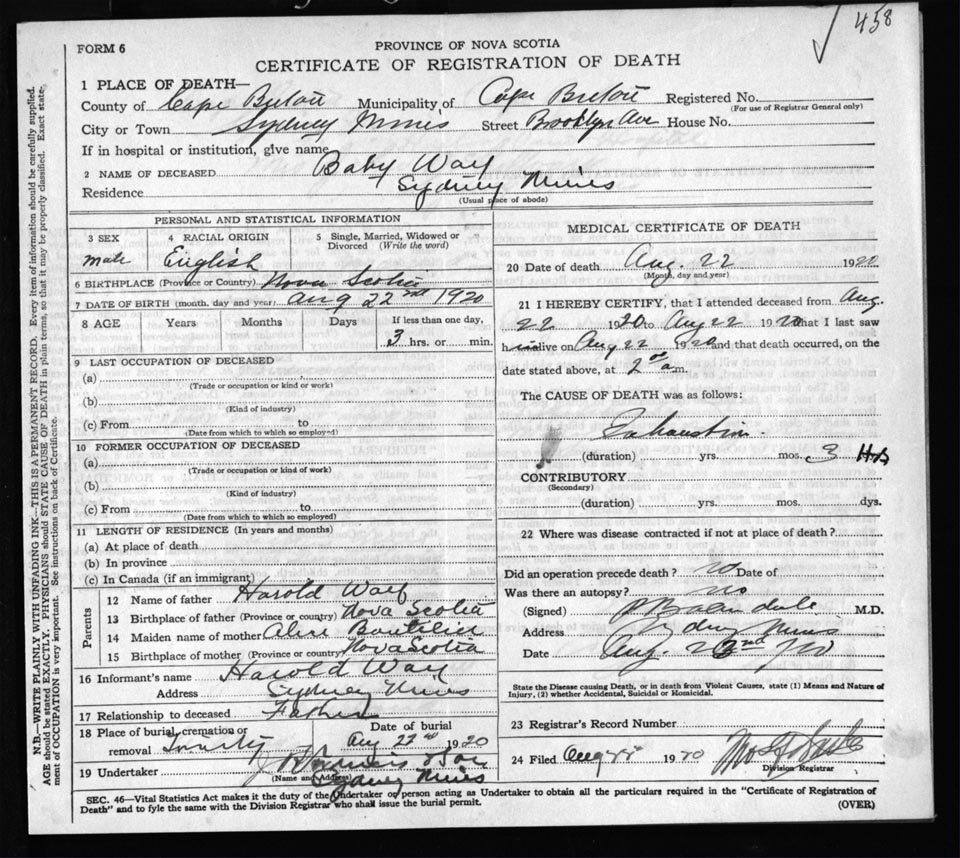 458
FORM 6
PROVINCE OF NOVA SCOTIA
CERTIFICATE OF REGISTRATION OF DEATH
N.B.—WRITE PLAINLY WITH UNFADING INK—THIS IS A PERMANENT RECORD. Every item of information should be carefully supplied.
AGE should be stated EXACTLY. PHYSICIANS should STATE CAUSE OF DEATH in plain terms, so that it may be properly classified. Exact state-
ment of OCCUPATION is very important. See instructions on back of Certificate.
1 PLACE OF DEATH—
County of Cape Breton Municipality of Cape Breton Registered No.
(For use of Registrar General only)
City or Town Sydney Mines Street Brooklyn Ave House No.
If in hospital or institution, give name
2 NAME OF DECEASED Baby Way
Residence Sydney Mines
(Usual place of abode)
PERSONAL AND STATISTICAL INFORMATION
3 SEX
male
4 RACIAL ORIGIN
English
5 Single, Married, Widowed or
Divorced (Write the word)
6 BIRTHPLACE (Province or Country) Nova Scotia
7 DATE OF BIRTH (month, day and year) Aug 22nd 1920
8 AGE Years Months Days If less than one day,
3 hrs. or min.
9 LAST OCCUPATION OF DECEASED
(a)
(Trade or occupation or kind or work)
(b)
(Kind of industry)
(c) From to
(Date from which to which so employed)
10 FORMER OCCUPATION OF DECEASED
(a)
(Trade or occupation or kind of work)
(b)
(Kind of industry)
(c) From to
(Date from which to which so employed)
11 LENGTH OF RESIDENCE (In years and months)
(a) At place of death
(b) In province
(c) In Canada (if an immigrant)
Parents
12 Name of father Harold Way
13 Birthplace of father (Province or country) Nova Scotia
14 Maiden name of mother Alice Boutilier
15 Birthplace of mother (Province or country) Nova Scotia
16 Informant's name Harold Way
Address Sydney Mines
17 Relationship to deceased Father
18 Place of burial, cremation or
removal Trinity
Date of burial
Aug 22nd 1920
19 Undertaker
(Name and Address) Sydney Mines
MEDICAL CERTIFICATE OF DEATH
20 Date of death Aug. 22 1920
(Month, day and year)
21 I HEREBY CERTIFY, that I attended deceased from Aug.
22 1920 to Aug 22 1920 that I last saw
him alive on Aug 22 1920 and that death occurred, on the
date stated above, at 2 00 a.m.
The CAUSE OF DEATH was as follows:
Exhaustion
(duration) yrs. mos. 3 Hrs
CONTRIBUTORY
(Secondary)
(duration) yrs. mos. dys.
22 Where was disease contracted if not at place of death?
Did an operation precede death? no Date of
Was there an autopsy? no
(Signed) M.D.
Address Sydney Mines
Date Aug. 23nd /20
State the Disease causing Death, or in death from Violent Causes, state (1) Means and Nature of
Injury, (2) whether Accidental, Suicidal or Homicidal.
23 Registrar's Record Number
24 Filed Aug 1920
Division Registrar
SEC. 46—Vital Statistics Act makes it the duty of the Undertaker or person acting as Undertaker to obtain all the particulars required in the "Certificate of Registration of
Death" and to fyle the same with the Division Registrar who shall issue the burial permit.
(OVER)